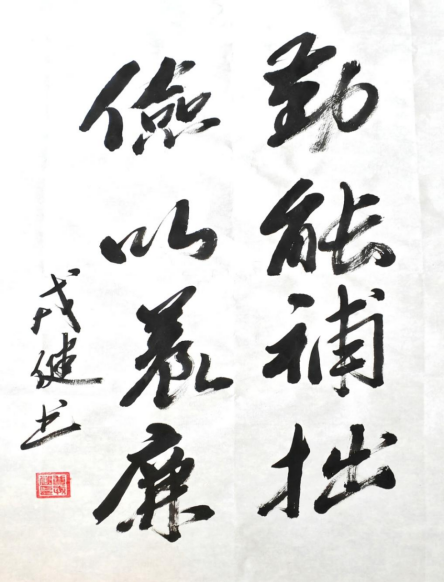 勤能補拙
儉以養廉
戎健书